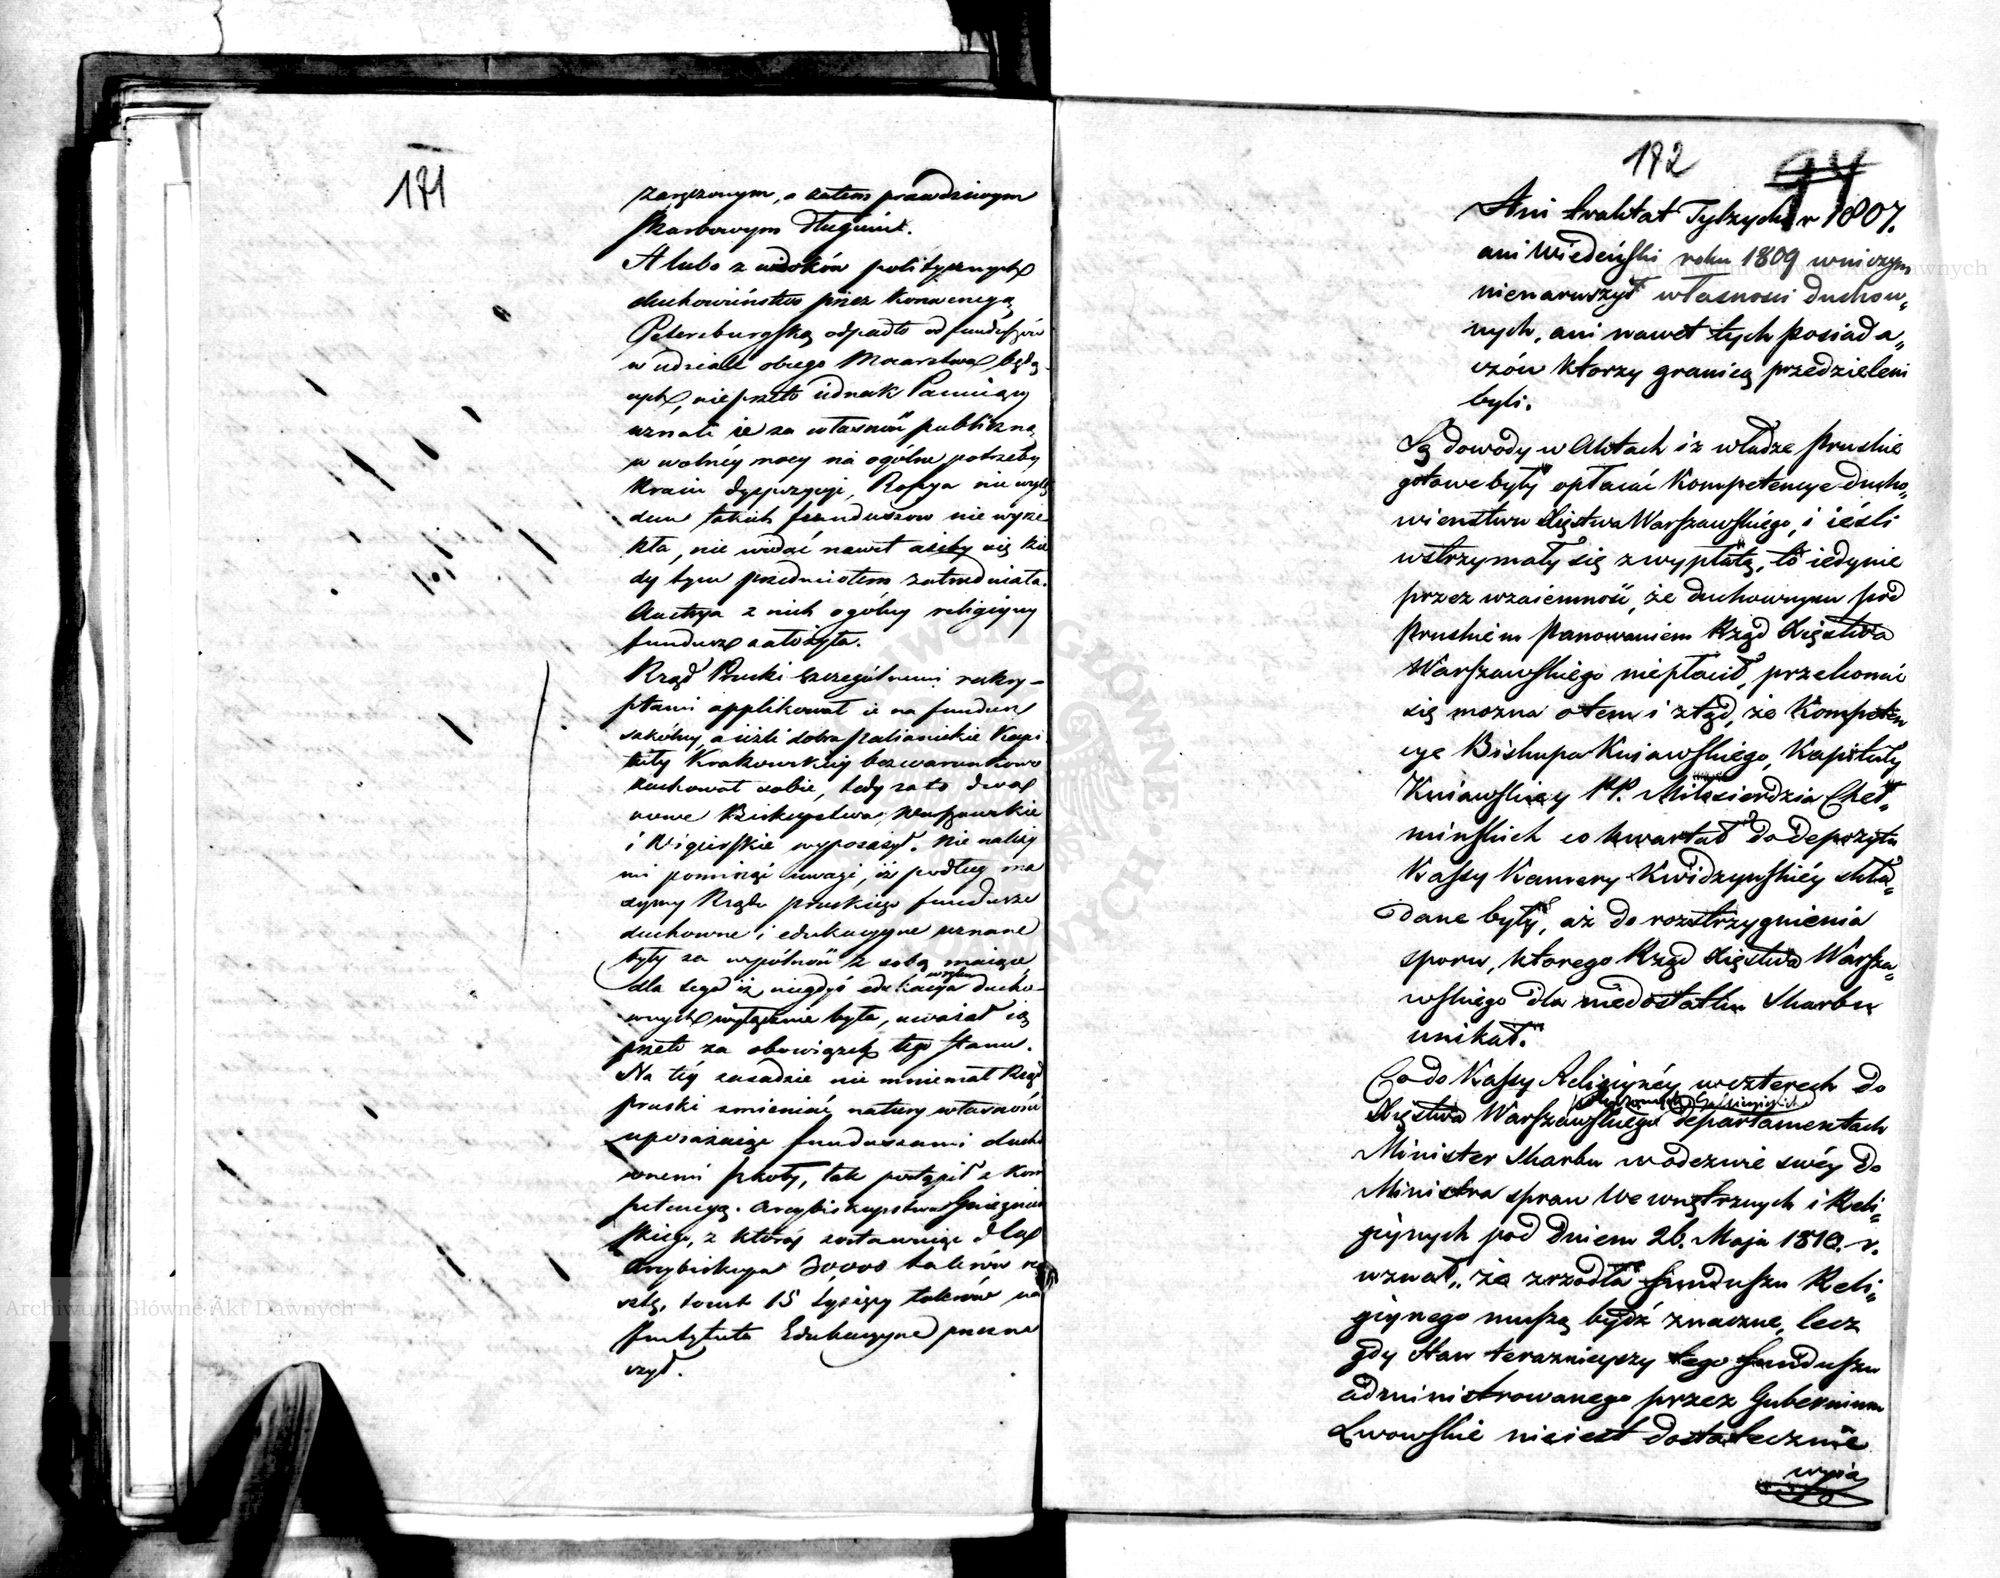 171
zaręczonym, a zatem prawdziwym
skarbowym długiem.
A lubo z widoków politycznych
duchowieństwo przez Konwencyą
Petersburgską odpadło od funduszów
w udziale obcego Mocarstwa będą
cych, nie przeto iednak Panuiący
uznali ie za własność publiczną
w wolney mocy na ogólne potrzeby
kraiu dyspozycyi, Rossya nie wyłą
dem takich funduszow nie wyrze
kła, nie widać nawet ażeby się kie
dy tym przedmiotem zatrudniała.
Austrya z nich ogólny religijny
fundusz założyła.
Rząd Pruski szczególnemi rakry-
ptami applikował ie na fundusz
szkólny, a ieżli dobra pralianickie Kapi
tuły Krakowskiey bezwarunkowo
zachował sobie, tedy za to dwa
nowe Biskupstwa, Warszawskie
i Wigierskie wyposażył. Nie należy
mi pominąć uwagi, iż podług ma
xymy Rządu pruskiego fundusze
duchowne i edukacyjne uznane
były za wspólność z sobą maiące
dla tego iż niegdyś edukacya ducho-
wnych wyłącznie była, uważał ią
przeto za obowiązek tego stanu.
Na tey zasadzie nie mniemał Rząd
pruski zmieniać natury własności
uposażaiąc funduszami ducho
wnemi szkoły, tak postąpił z kom
petencyą Arcybiskupstwa Gnieznień
skiego, z którey zostawuiąc dla
Arcybiskupa 30000 talerów re
sztę, to iest 15 tysięcy talerów na
Instytuta Edukacyjne przezna
czył.
172 94
Ani traktat Tylżycki r 1807.
ani Wiedeński roku 1809 wniczym
nienaruszył własności duchow„
nych, ani nawet tych posiada„
czów którzy granicą przedzieleni
byli.
Są dowody w Aktach iż władze Pruskie
gotowe były opłacać Kompetencye ducho„
wieństwu Xięstwa Warszawskiego, i ieśli
wstrzymały się z wypłatą, to iedynie
przez wzaiemność, że duchownym pod
Pruskiem Panowaniem Rząd Xięstwa
Warszawskiego niepłacił, przekonać
się można o tem i ztąd, że Kompeten
cye Biskupa Kuiawskiego, Kapituły
Kuiawskiey PP. Miłosierdzia Cheł„
mińskich co kwartał do Depozytu
Kassy Kamery Kwidzyńskiéy skła„
dane były, aż do rozstrzygnienia
sporu, którego Rząd Xięstwa Warsza„
wskiego dla niedostatku Skarbu
unikał.
Co do Kassy Religiynéy wczterech do
Xięstwa Warszawskiego Departamentach
Minister Skarbu w odezwie swéy do
Ministra spraw Wewnętrznych i Reli„
giynych pod Dniem 26. Maja 1810. r.
uznał„ że zrzodła Funduszu Reli„
giynego muszą bydź znaczne, lecz
gdy Stan teraznieyszy tego Funduszu
administrowanego przez Gubernium
Lwowskie nieiest dostatecznie
wyia
Archiwum Główne Akt Dawnych
Archiwum Główne Akt Dawnych
ARCHIWUM GŁÓWNE AKT DAWNYCH